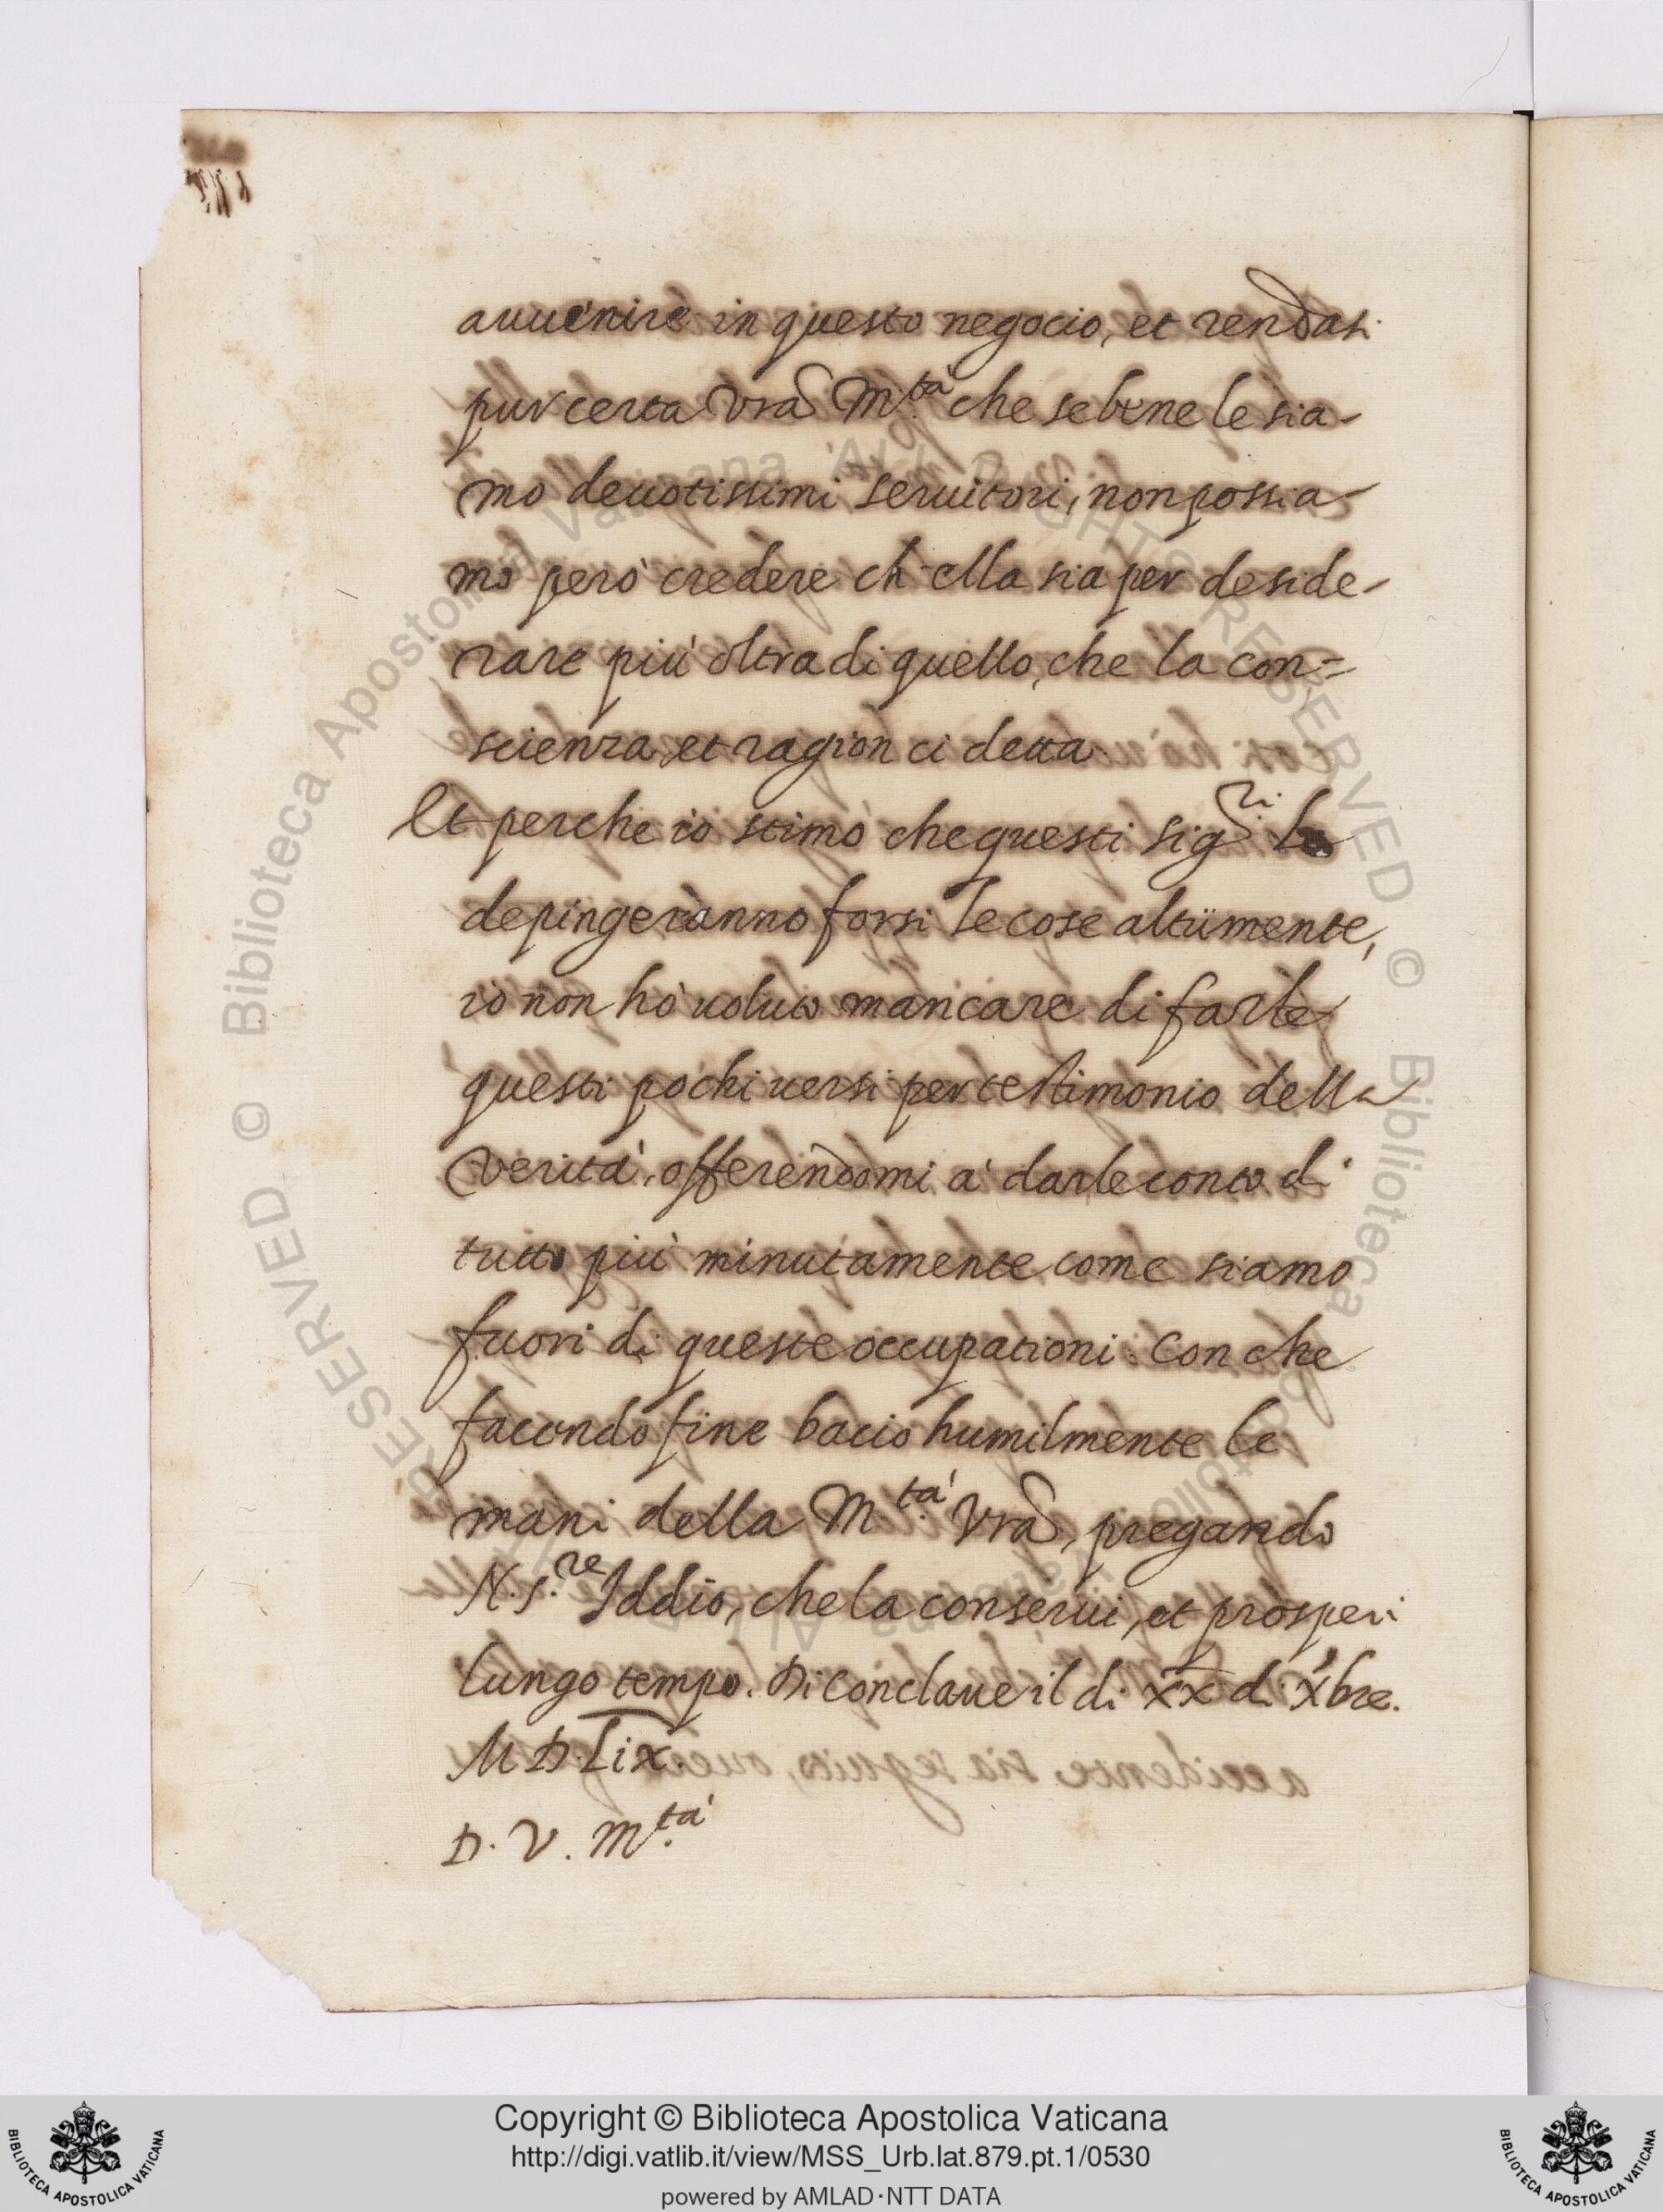 auuenire in questo negocio, et rendasi
pur certa Vra M.tà che se bene le sia-
mo deuotissimi seruitori, non possia-
mo però credere ch'ella sia per deside-
rare più oltra di quello, che la con=
scienza, et ragion ci detta.
Et perche io stimo che questi Sig.ri le
depingeranno forsi le cose altrimente,
io non hò uoluto mancare di farle
questi pochi uersi per testimonio della
verità, offerendomi à darle conto di
tutto più minutamente come siamo
fuori di queste occupationi. Con che
facendo fine bacio humilmente le
mani della M.tà Vra, pregando
N. S.re Iddio, che la conserui, et prosperi
lungo tempo. Di Conclaue il di xx di Xbre.
M D. Lix.
D. V. M.tà
© Biblioteca Apostolica Vaticana ALL RIGHTS RESERVED © Biblioteca Apostolica Vaticana ALL RIGHTS RESERVED
Copyright © Biblioteca Apostolica Vaticana
http://digi.vatlib.it/view/MSS_Urb.lat.879.pt.1/0530
powered by AMLAD·NTT DATA
BIBLIOTECA APOSTOLICA VATICANA
BIBLIOTECA APOSTOLICA VATICANA